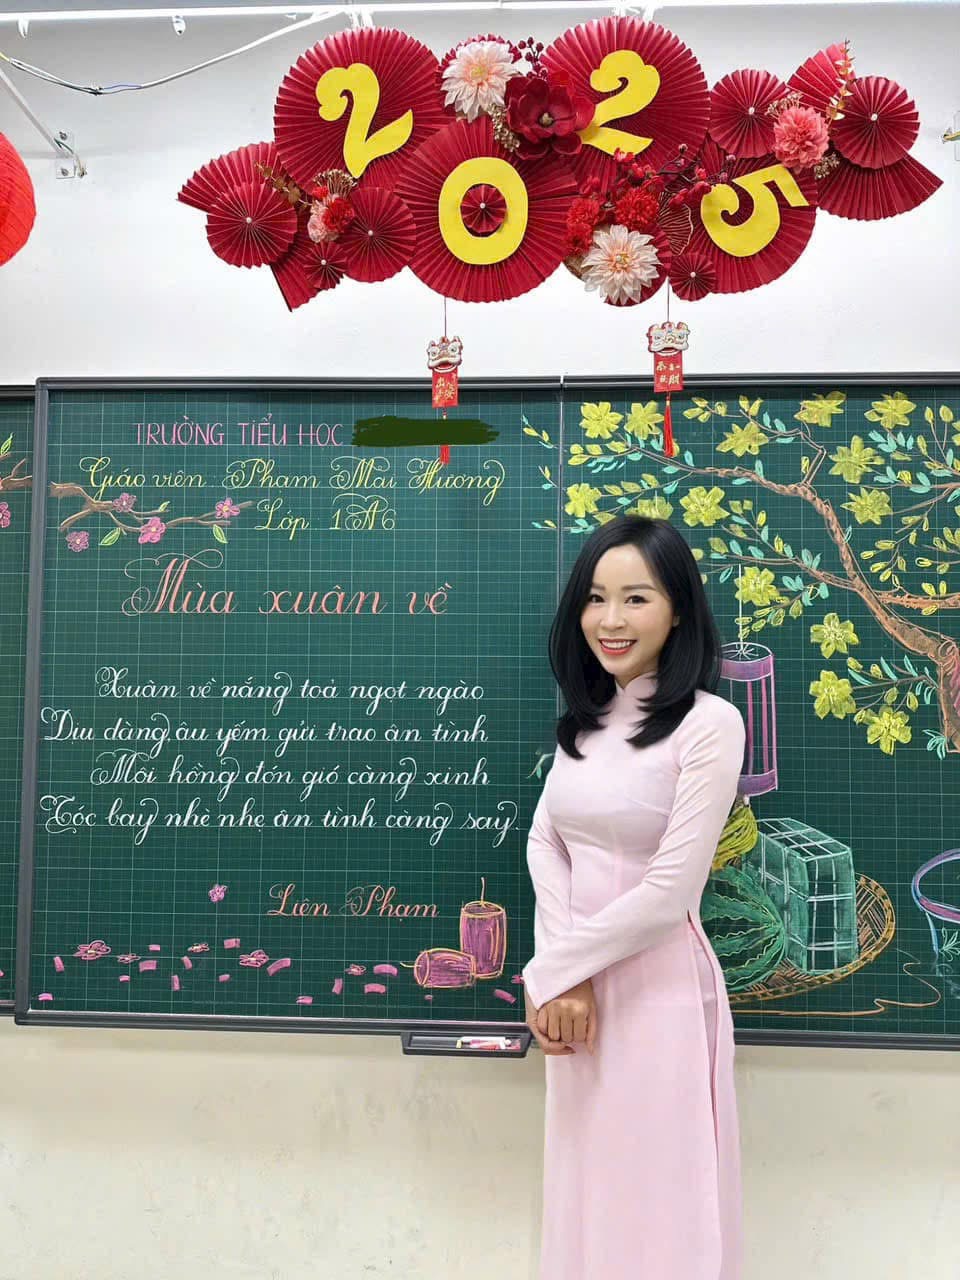 2025
TRƯỜNG TIỂU HỌC
Giáo viên: Phạm Mai Hương
Lớp 1A6
Mùa xuân về
Xuân về nắng toả ngọt ngào
Dịu dàng, âu yếm gửi trao ân tình
Môi hồng đón gió càng xinh
Tóc bay nhè nhẹ ân tình càng say.
Liên Phạm